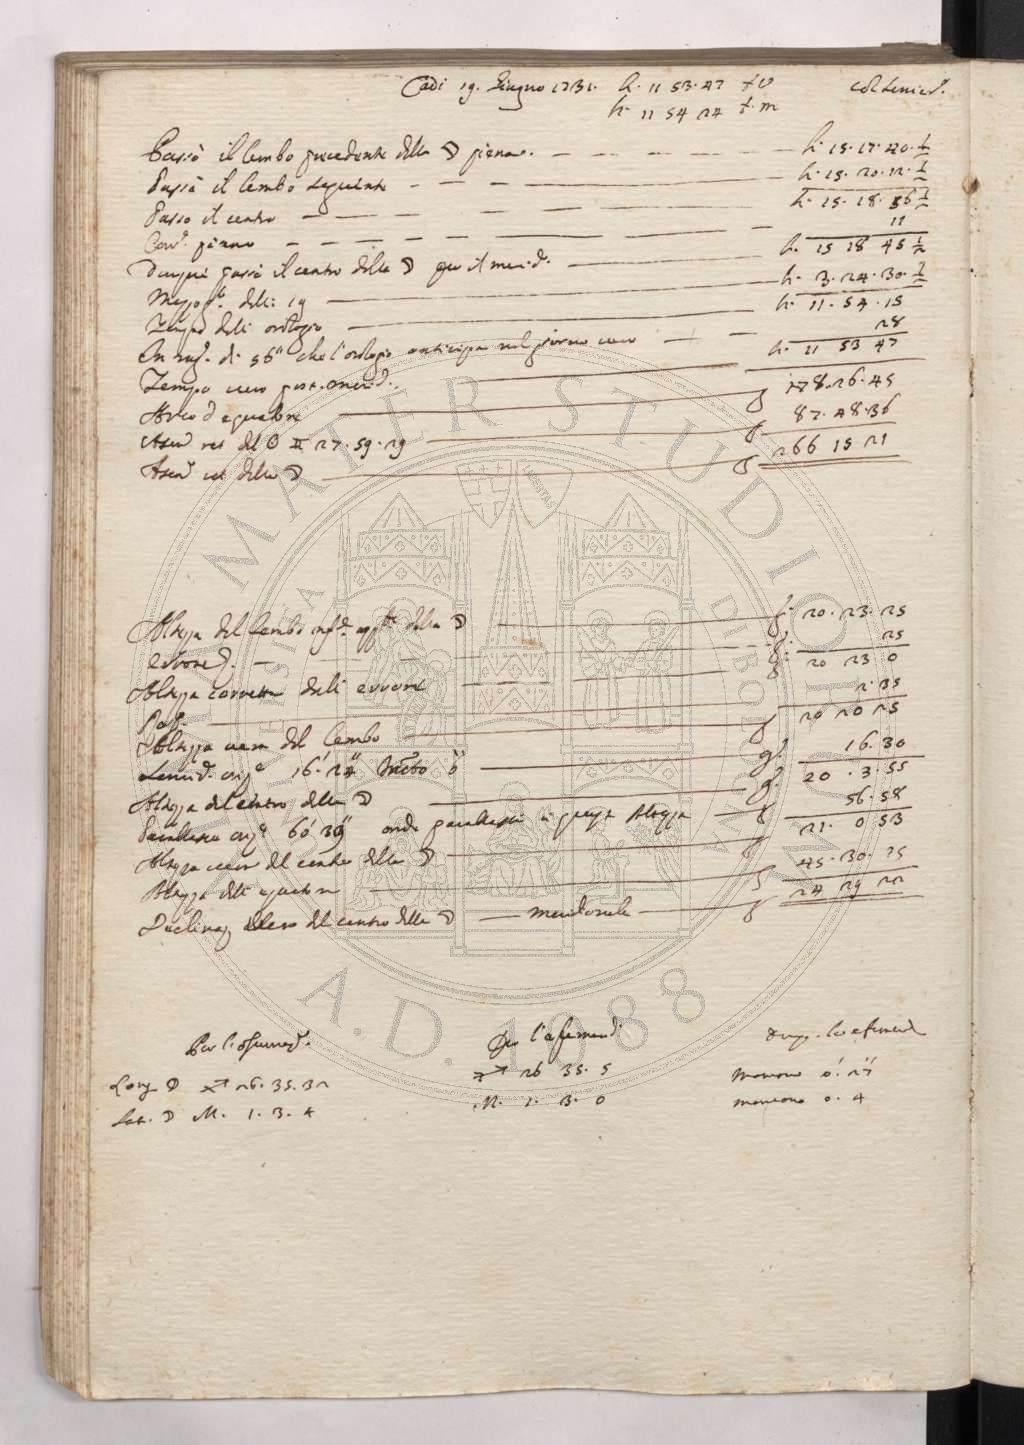 Adi 19. Giugno 1731. h. 11 53. 47 t. v col semic.
h. 11 54 24 t. m
Passò il lembo precedente della ☽ piena. h. 15. 17. 40. ½
Passò il lembo seguente h. 15. 20. 12. ½
Passò il centro h. 15. 18. 56 ½
Corr. 11
Dunque passò il centro della ☽ per il merid. h. 15 18 45 ½
Mezzo g. delli 19 h. 3. 24. 30. ½
Tempo dell' orologio h. 11. 54. 15
In rag. di 56" che l'orologio anticipa nel giorno vero 28
Tempo vero post. merid. h. 11 53 47
Arco d'equatore 178. 26. 45
Asen. ret del ☉ ♊ 27. 59. 29 g 87. 48. 36
Asen. ret della ☽ g 266 15 21
Altezza del lembo della ☽ g. 20. 23. 25
Errore 25
Altezza corretta dall' errore g. 20 23 0
2. 35
Altezza vera del lembo g 20 20 25
Semid. 16' 24" 16. 30
Altezza del centro della ☽ g. 20. 3. 55
Parallasse oriz. 60' 39" onde parallasse in questa altezza 56. 58
Altezza vera del centro della ☽ g 21. 0 53
Altezza dell' equatore g 45. 30. 15
Declinaz. del centro della ☽ meridionale g 24 29 22
Per l'osservaz. Per l'efemeridi
Long ☽ ♐ 26. 35. 32 ♐ 26 35. 5 mancano 0' 27"
Lat. ☽ M. 1. 3. 4 M. 1. 3. 0 mancano 0. 4
ALMA MATER STUDIORUM
A.D. 1088